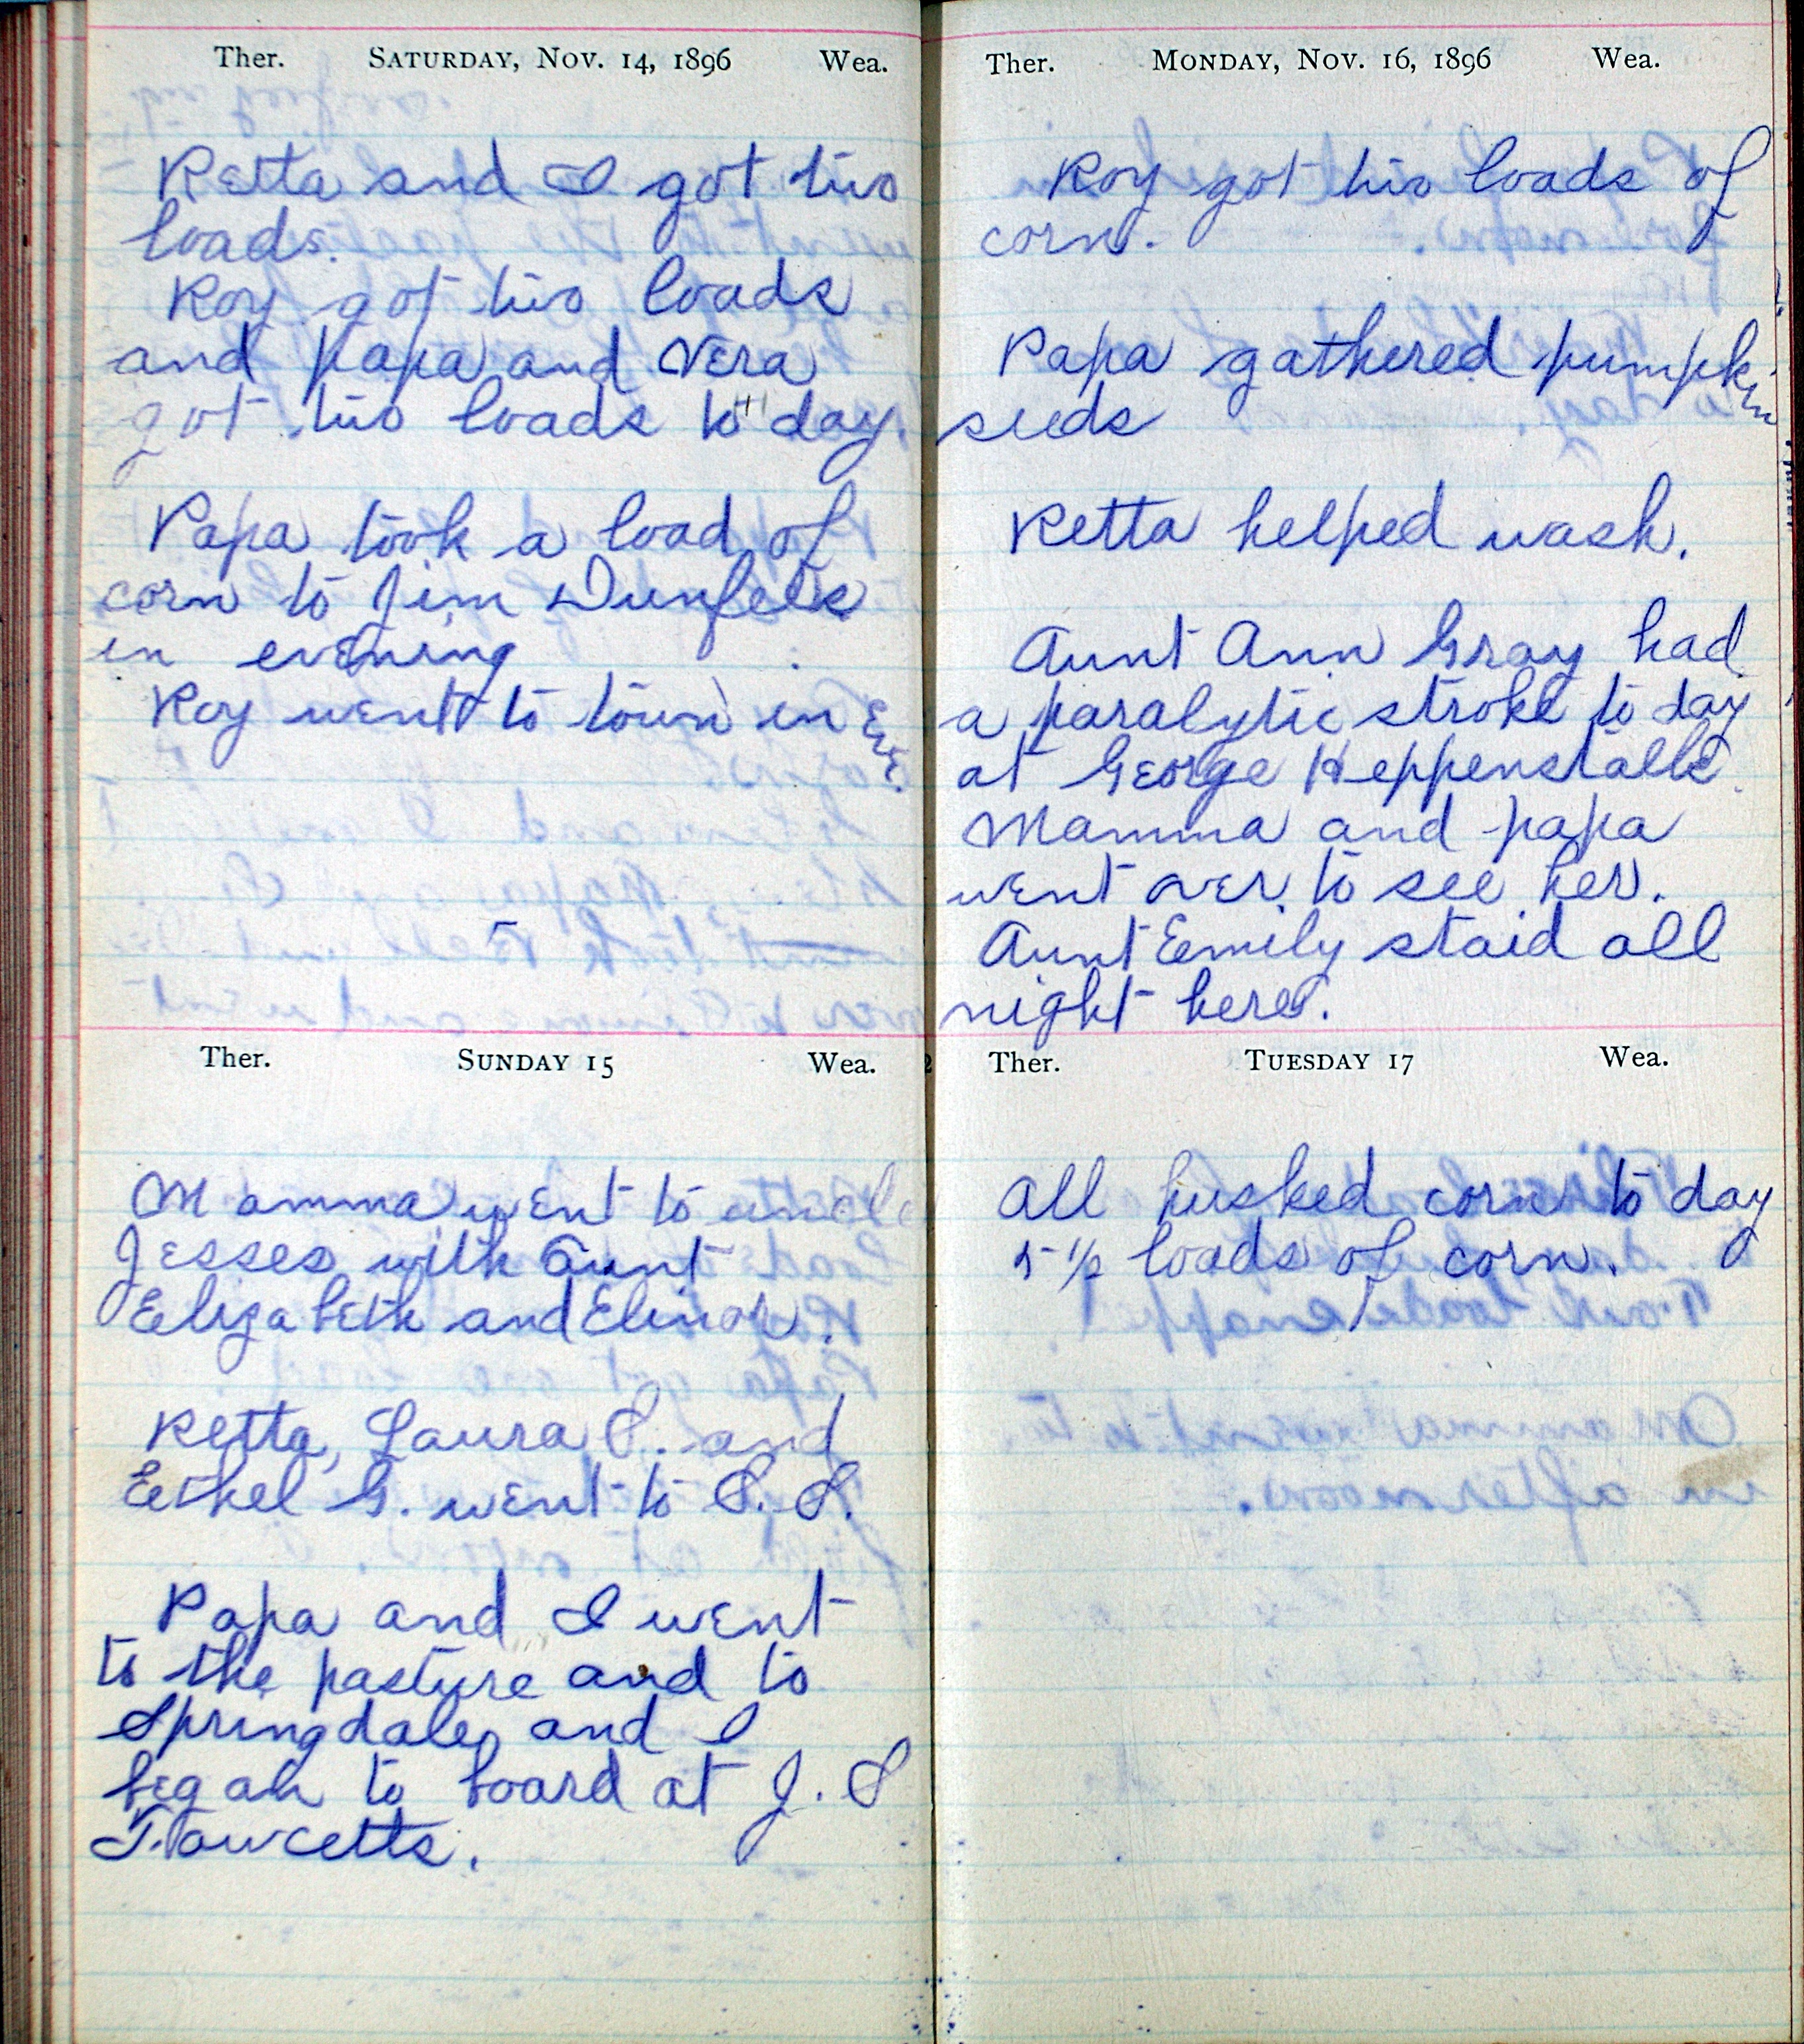 Ther. SATURDAY, NOV. 14, 1896 Wea.
Retta and I got two
loads.
Roy got two loads
and papa and Vera
got two loads to day.
Papa took a load of
corn to Jim
in evening
Roy went to town in Eve.
Ther. SUNDAY 15 Wea.
Mamma went to uncle
Jesses with Aunt
Elizabeth and Elinor.
Retta, Laura S. and
Ethel G. went to S. S.
Papa and I went
to the pasture and to
Springdale and I
began to board at J. S
Fawcetts.
Ther. MONDAY, NOV. 16, 1896 Wea.
Roy got two loads of
corn.
Papa gathered pumpkin
seeds
Retta helped wash.
Aunt Ann Gray had
a paralytic stroke to day
at George Heppenstalls.
Mamma and papa
went over to see her.
Aunt Emily staid all
night here.
Ther. TUESDAY 17 Wea.
All husked corn to day
5 1/2 loads of corn.